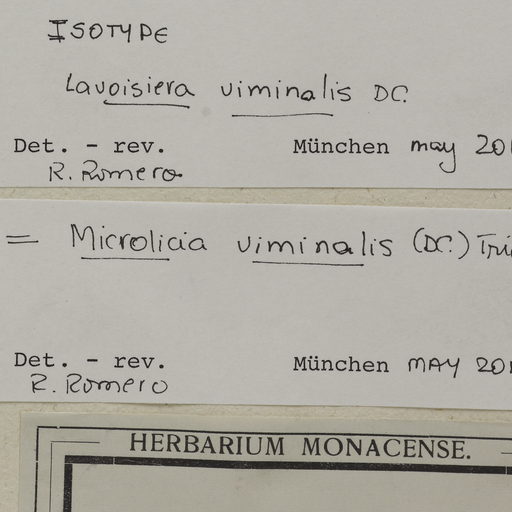 ISOTYPE
Lavoisiera viminalis DC.
Det. - rev. München may 201
R. Romero
= Microlicia viminalis (DC.) Tri
Det. - rev. München MAY 201
R. Romero
HERBARIUM MONACENSE.